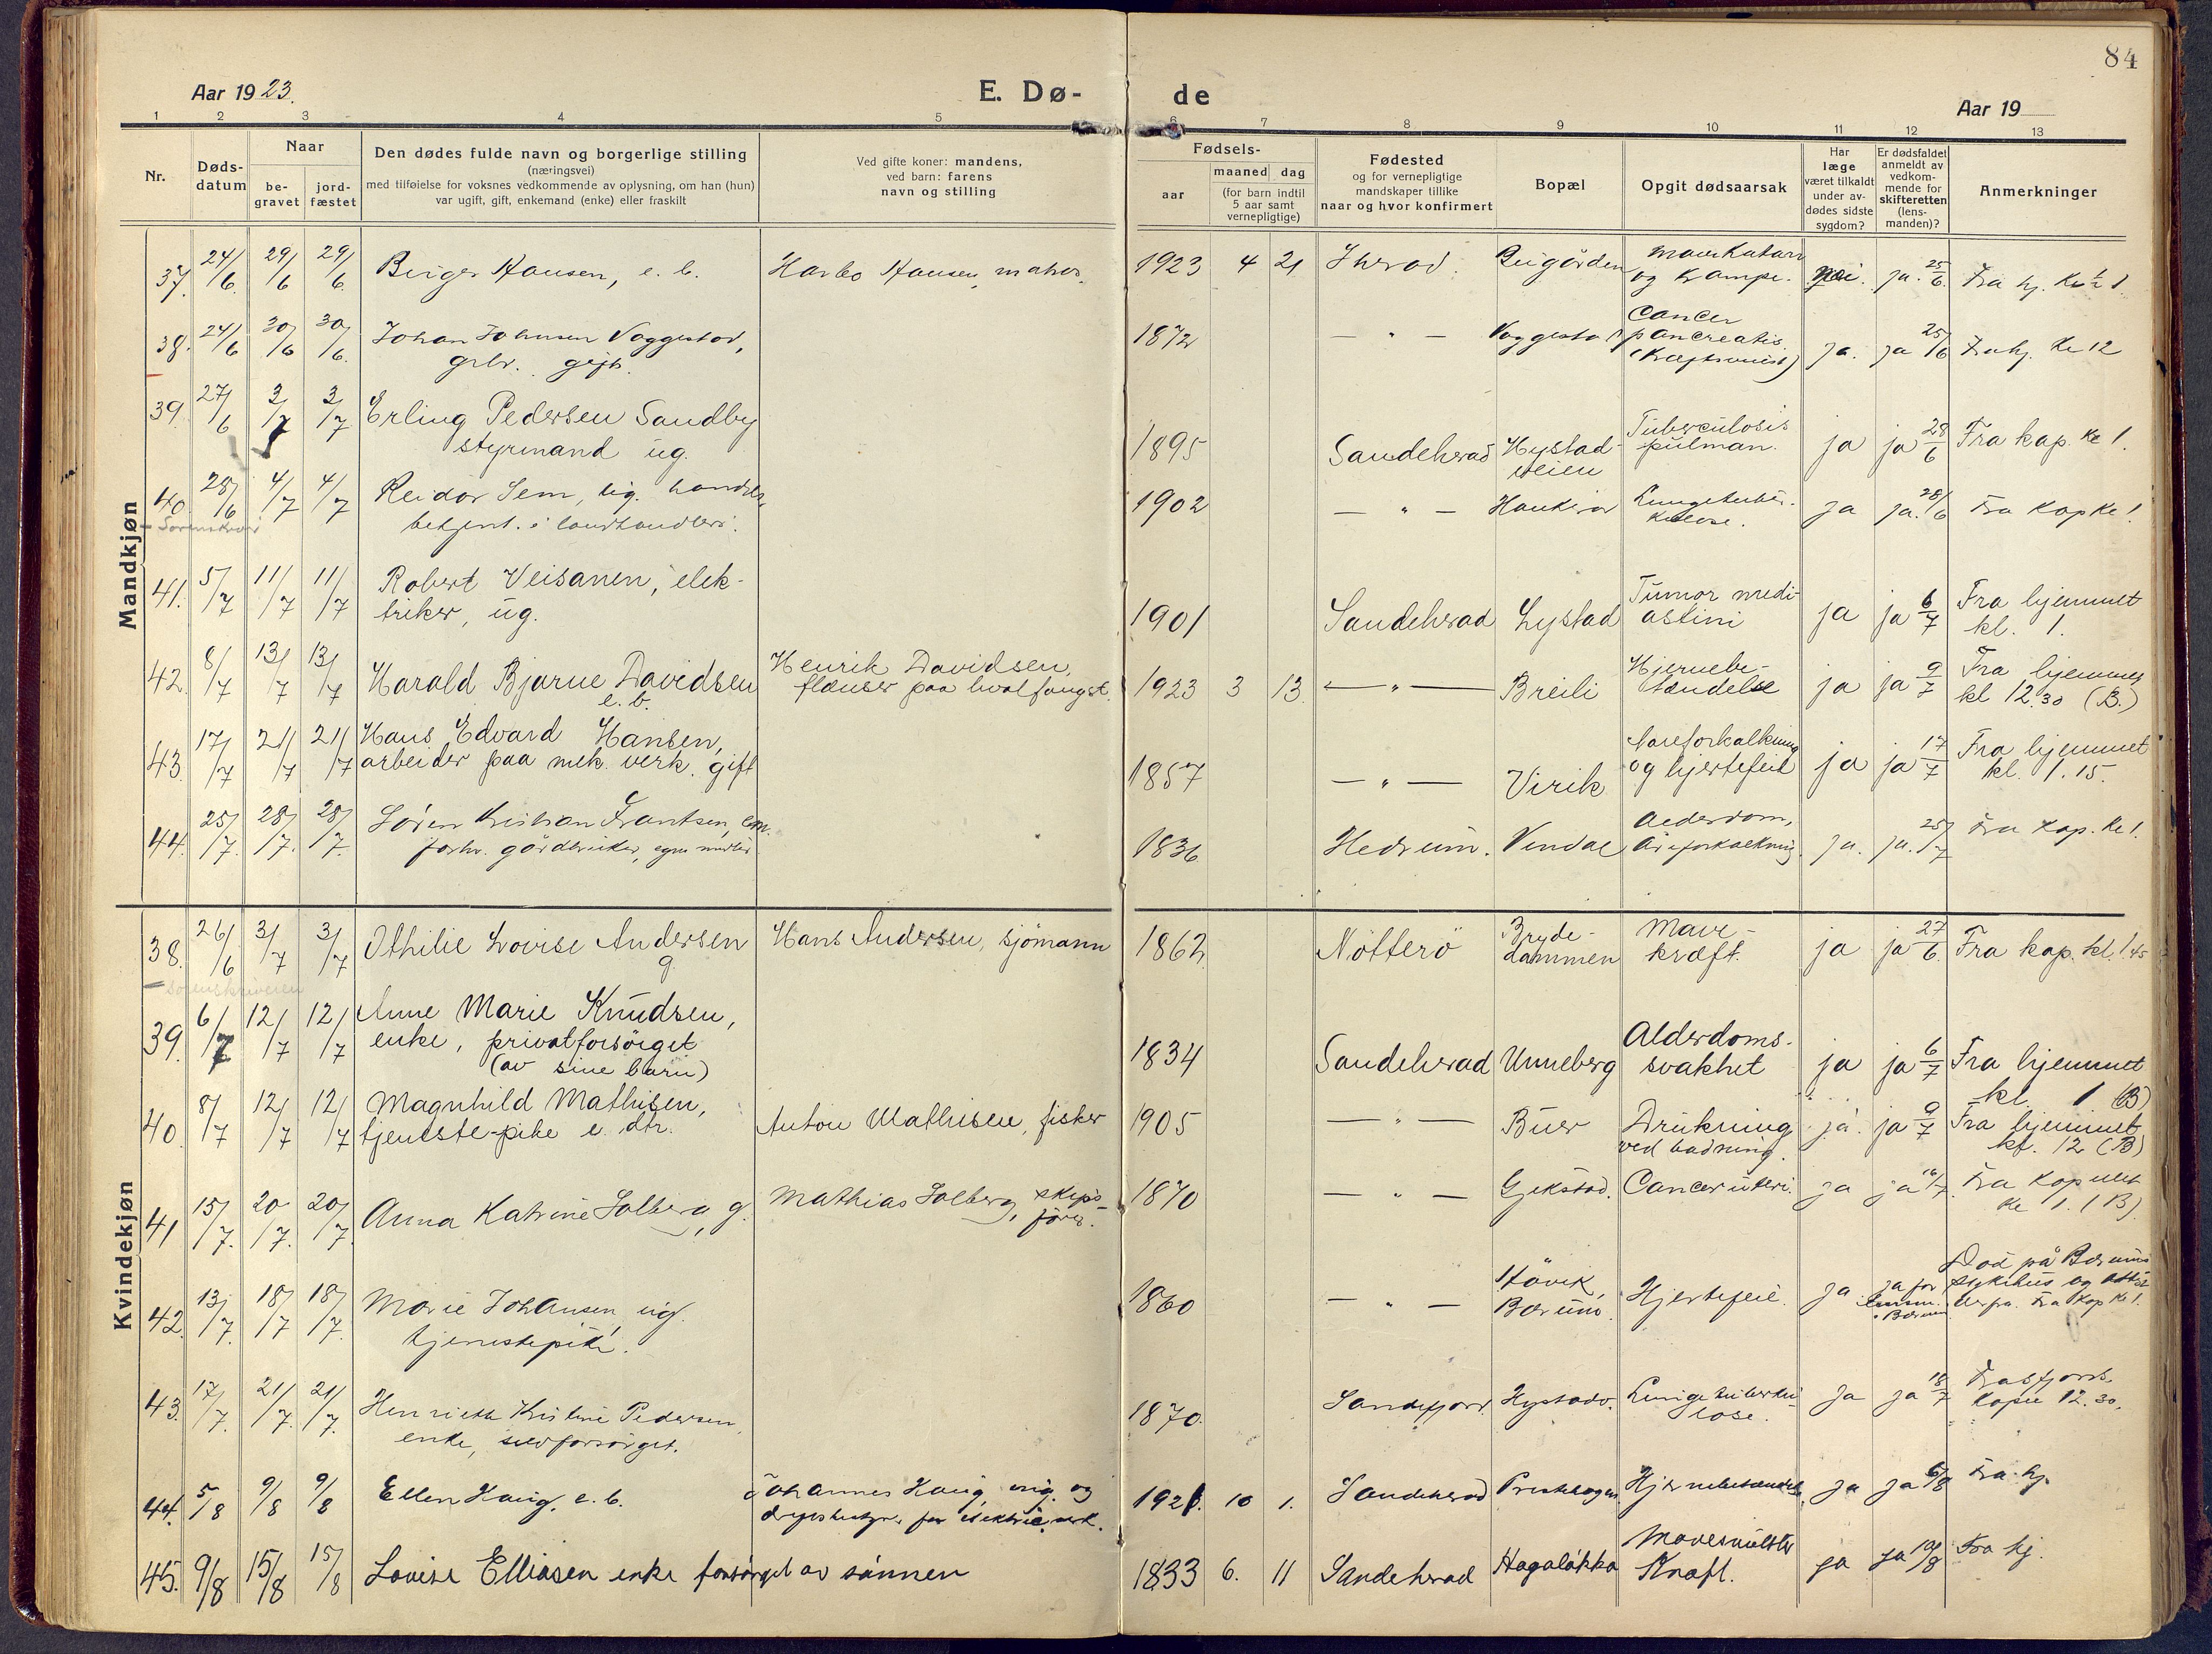 84
Aar 1923.
E. Dø-
de
Aar 19
1 2 3 4 5 6 7 8 9 10 11 12 13
Nr.
Døds-
datum
Naar
be-
gravet
jord-
fæstet
Den dødes fulde navn og borgerlige stilling
(næringsvei)
med tilføielse for voksnes vedkommende av oplysning, om han (hun)
var ugift, gift, enkemand (enke) eller fraskilt
Ved gifte koner: mandens,
ved barn: farens
navn og stilling
Fødsels-
aar
maaned dag
(for barn indtil
5 aar samt
vernepligtige)
Fødested
og for vernepligtige
mandskaper tillike
naar og hvor konfirmert
Bopæl
Opgit dødsaarsak
Har
læge
været tilkaldt
under av-
dødes sidste
sygdom?
Er dødsfaldet
anmeldt av
vedkom-
mende for
skifteretten
(lens-
manden)?
Anmerkninger
Mandkjøn
37. 24/6. 29/6 29/6. Birger Hansen, e. b. 1923 4 21 nei. ja. 25/6.
og krampe.
38. 24/6 30/6 30/6. Johan Johnsen Vaggestad, 1872 — " — Vaggestad Cancer
gbr. gift. pancreatis ja. ja 25/6 Fra hj. kl 12
39. 27/6 3/7 3/7 Erling Pedersen Sandby
styrmand ug. 1895 Sandeherad Hystad-
veien Tuberculosis
pulman. ja ja 28/6 Fra kap. kl 1.
40. 28/6 4/7 4/7 Reidar Sem, ug. handels-
betjent. i landhandleri. 1902 — " — Haukerød Lungetuber-
kulose. ja ja. 28/6 Fra kap kl 1.
41. 5/7 11/7 11/7 Robert Veisanen, elek-
triker, ug. 1901 Sandeherad Lystad Tumor medi-
astini ja ja 6/7 Fra hjemmet
kl. 1.
42. 8/7 13/7 13/7 Harald Bjarne Davidsen
e. b. Henrik Davidsen,
flænser paa hvalfangst. 1923 3 13. — " — Breili Hjernebe-
tændelse ja ja 9/7 Fra hjemmet
kl 12.30 (B.)
43. 17/7 21/7 21/7 Hans Edvard Hansen,
arbeider paa mek. verk. gift 1857 — " — Virik Aareforkalkning
og hjertefeil ja ja 17/7 Fra hjemmet
kl. 1.15.
44. 25/7. 28/7. 28/7. Søren Kristian Frantsen, em.
forh. gårdbruker, egne midler 1836 Hedrum. Vindal Alderdom,
Åreforkalkning. ja. ja. 25/7 Fra kap. kl 1.
Kvindekjøn
38. 26/6 3/7 3/7 Othilie Lovise Andersen
g Hans Andersen, sjömann 1862 Nötterö Bryde-
dammen Mave-
kræft. ja ja 27/6. Fra kap. kl. 1.45
Sorenskriveren
39. 6/7 12/7 12/7 Anne Marie Knudsen,
enke, privatforsörget
(av sine barn) 1834 Sandeherad Unneberg Alderdoms-
svakhet ja ja 6/7 Fra hjemmet
kl. 1 (B)
40. 8/7 12/7 12/7 Magnhild Mathisen,
tjeneste-pike e. dtr. Anton Mathisen, fisker 1905 — " — Buer Drukning
ved badning. ja. ja 9/7 Fra hjemmet
kl. 12 (B)
41 15/7. 20/7. 20/7. Anna Katrine Solberg, g. Mathias Solberg, skips-
förer. 1870 — " — Gjekstad. Cancer uteri. ja ja 16/7. Fra kapellet
kl 1. (B).
42. 13/7. 18/7 18/7. Marie Johansen, ug.
tjenestepike. 1860 — " — Hövik,
Bærum. Hjertefeil. ja ja for
lensm.
i Bærum Död på Bærums
sykehus og
Fra kap kl 1.
43. 17/7. 21/7. 21/7. Henriette Kristine Pedersen,
enke, selvforsørget. 1870. Sandefjord Hystadv. Lungetuberku-
lose. ja ja 18/7
12.30.
44. 5/8 9/8 9/8 Ellen Haug, e. b. Johannes Haug, ing. og
1921. 10 1. Sandeherad Hjernebetændelse. ja ja 6/8 Fra hj.
45. 9/8 15/8 15/8 Lovise Elliasen enke forsörget av sönnen 1833 6. 11 Sandeherad Hagalökka ja ja 10/8 Fra hj.
Kræft.